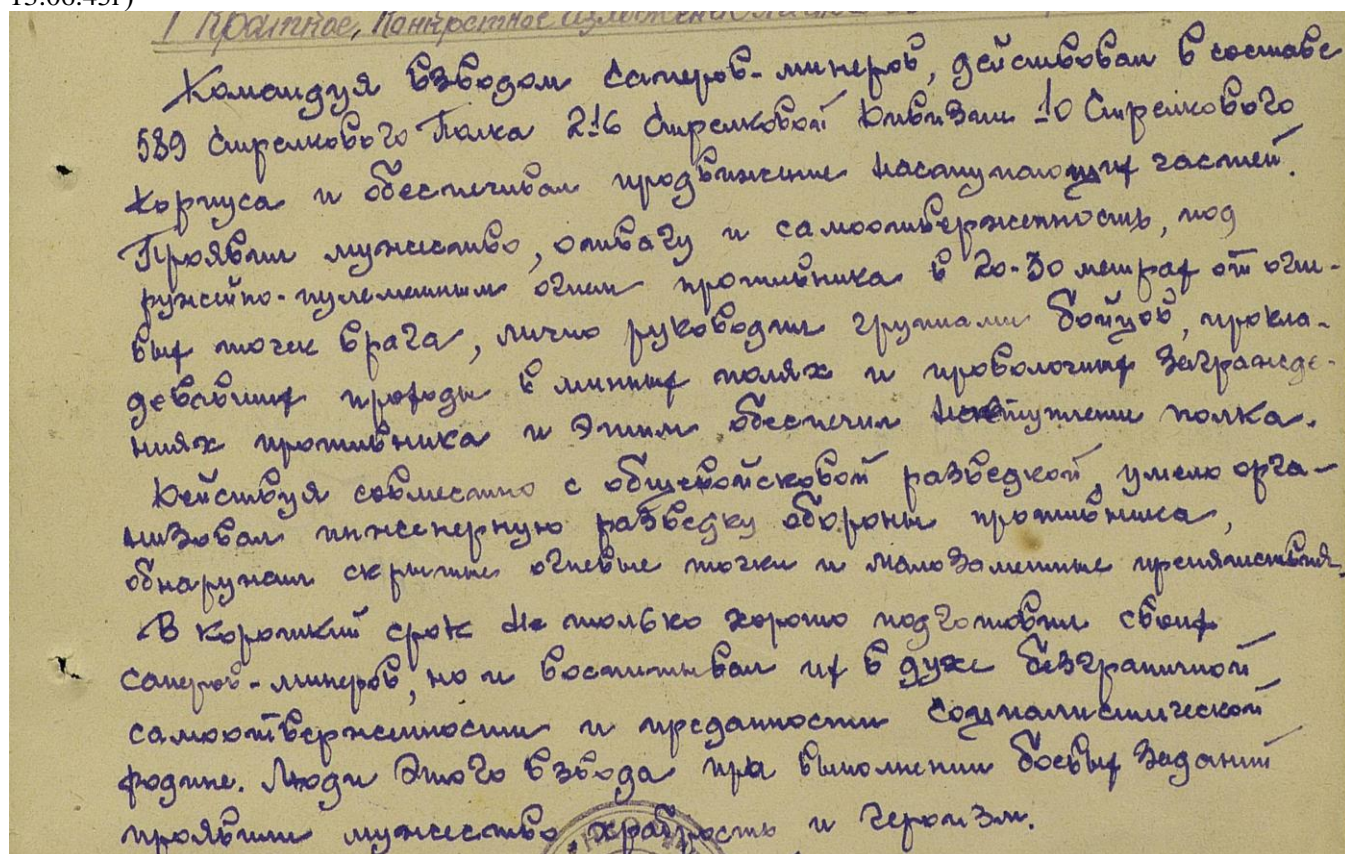 I Краткое, конкретное изложение
Командуя взводом саперов-минеров, действовал в составе
589 Стрелкового Полка 216 Стрелковой Дивизии 10 Стрелкового
Корпуса и обеспечивал продвижение наступающих частей.
Проявил мужество, отвагу и самоотверженность, под
ружейно-пулеметным огнем противника в 20-30 метрах от огне-
вых точек врага, лично руководил группами бойцов, прокла-
девавших проходы в минных полях и проволочных загражде-
ниях противника и этим обеспечил наступление полка.
Действуя совместно с общевойсковой разведкой, умело орга-
низовал инженерную разведку обороны противника,
обнаружил скрытые огневые точки и мало заметные препятствия.
В короткий срок не только хорошо подготовил своих
саперов-минеров, но и воспитывал их в духе безграничной
самоотверженности и преданности социалистической
родине. Люди этого взвода при выполнении боевых заданий
проявили мужество храбрость и героизм.